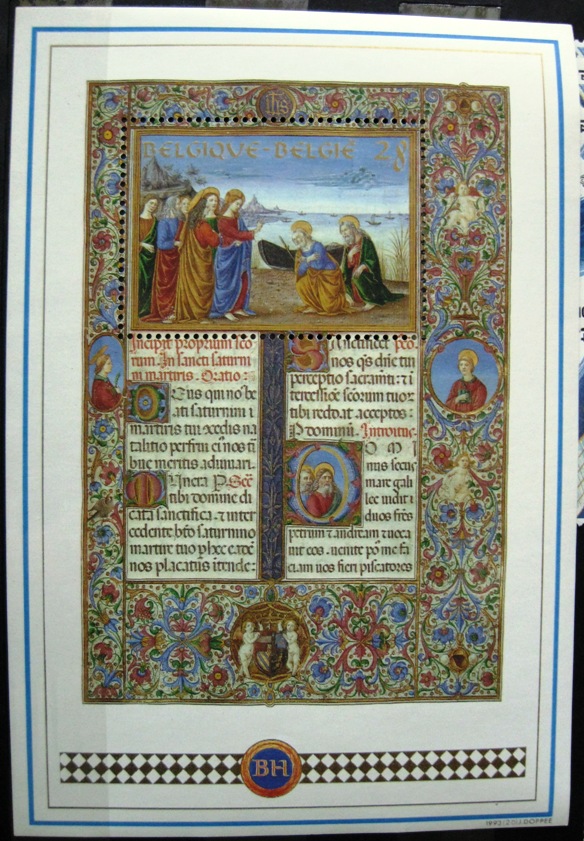 ihs
BELGIQVE-BELGIË 28
Incipit proprium sco
rum. In sancti saturni
ni martiris. Oratio:
Deus qui nos be
ati saturnini
martiris tui
talitio perfrui
meritis adiuvari.
tibi domine di
cata sanctifica et inter
cedente bto saturnino
martire tuo
nos placatus intende:
Sanctificet
nos qs dne tui
perceptio sacramti: et i
tercessio scorum tuor
tibi reddat acceptos:
P dominu. Introitus.
Do mi
nus secus
mare gali
lee vidit
duos frēs
petrum et andream et voca
vit eos. venite po me fa
ciam vos fieri piscatores
BH
1992
J.DOPPEE